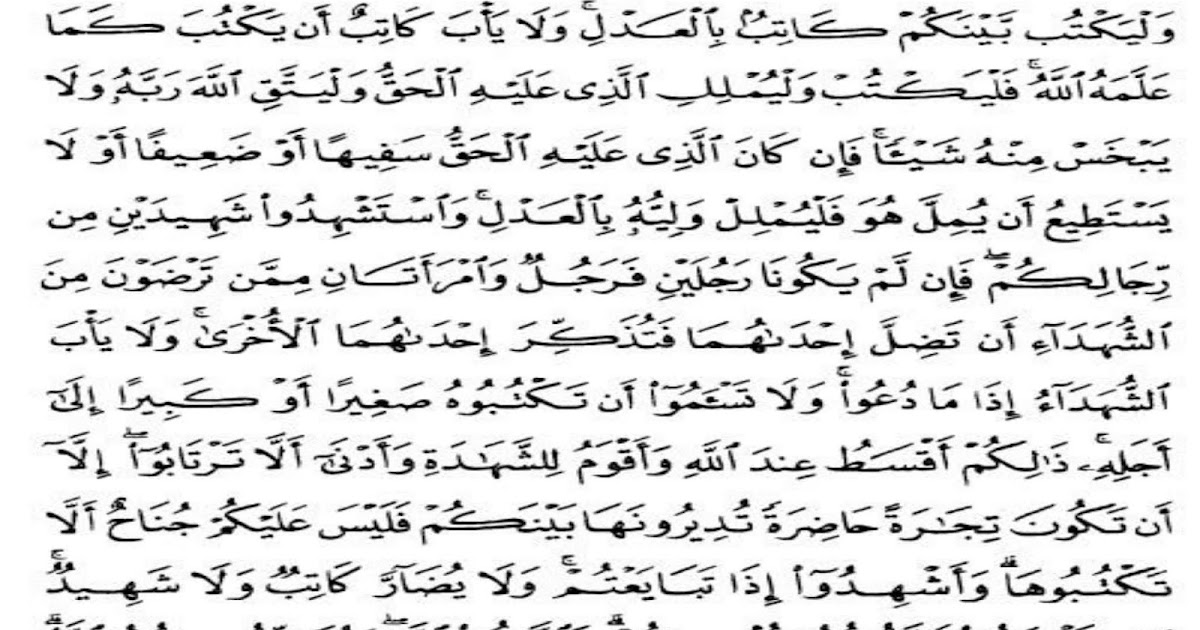 وَلْيَكْتُب بَّيْنَكُمْ كَاتِبٌۢ بِٱلْعَدْلِ ۚ وَلَا يَأْبَ كَاتِبٌ أَن يَكْتُبَ كَمَا
عَلَّمَهُ ٱللَّهُ ۚ فَلْيَكْتُبْ وَلْيُمْلِلِ ٱلَّذِى عَلَيْهِ ٱلْحَقُّ وَلْيَتَّقِ ٱللَّهَ رَبَّهُۥ وَلَا
يَبْخَسْ مِنْهُ شَيْـًٔا ۚ فَإِن كَانَ ٱلَّذِى عَلَيْهِ ٱلْحَقُّ سَفِيهًا أَوْ ضَعِيفًا أَوْ لَا
يَسْتَطِيعُ أَن يُمِلَّ هُوَ فَلْيُمْلِلْ وَلِيُّهُۥ بِٱلْعَدْلِ ۚ وَٱسْتَشْهِدُوا۟ شَهِيدَيْنِ مِن
رِّجَالِكُمْ ۖ فَإِن لَّمْ يَكُونَا رَجُلَيْنِ فَرَجُلٌ وَٱمْرَأَتَانِ مِمَّن تَرْضَوْنَ مِنَ
ٱلشُّهَدَآءِ أَن تَضِلَّ إِحْدَىٰهُمَا فَتُذَكِّرَ إِحْدَىٰهُمَا ٱلْأُخْرَىٰ ۚ وَلَا يَأْبَ
ٱلشُّهَدَآءُ إِذَا مَا دُعُوا۟ ۚ وَلَا تَسْـَٔمُوٓا۟ أَن تَكْتُبُوهُ صَغِيرًا أَوْ كَبِيرًا إِلَىٰٓ
أَجَلِهِۦ ۚ ذَٰلِكُمْ أَقْسَطُ عِندَ ٱللَّهِ وَأَقْوَمُ لِلشَّهَٰدَةِ وَأَدْنَىٰٓ أَلَّا تَرْتَابُوٓا۟ ۖ إِلَّآ
أَن تَكُونَ تِجَٰرَةً حَاضِرَةً تُدِيرُونَهَا بَيْنَكُمْ فَلَيْسَ عَلَيْكُمْ جُنَاحٌ أَلَّا
تَكْتُبُوهَا ۗ وَأَشْهِدُوٓا۟ إِذَا تَبَايَعْتُمْ ۚ وَلَا يُضَآرَّ كَاتِبٌ وَلَا شَهِيدٌ ۚ